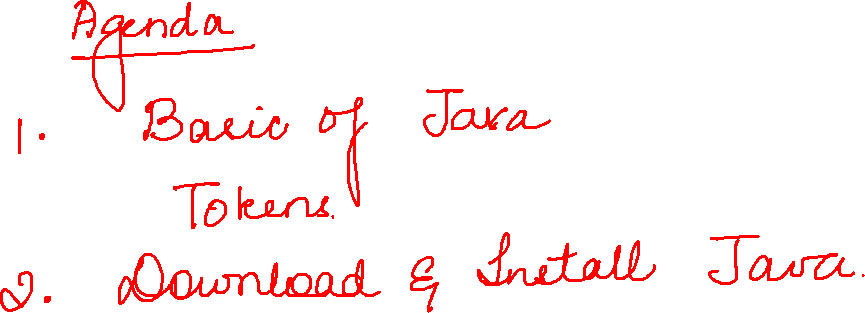 Agenda
1. Basic of Java
Tokens.
2. Download & Install Java.